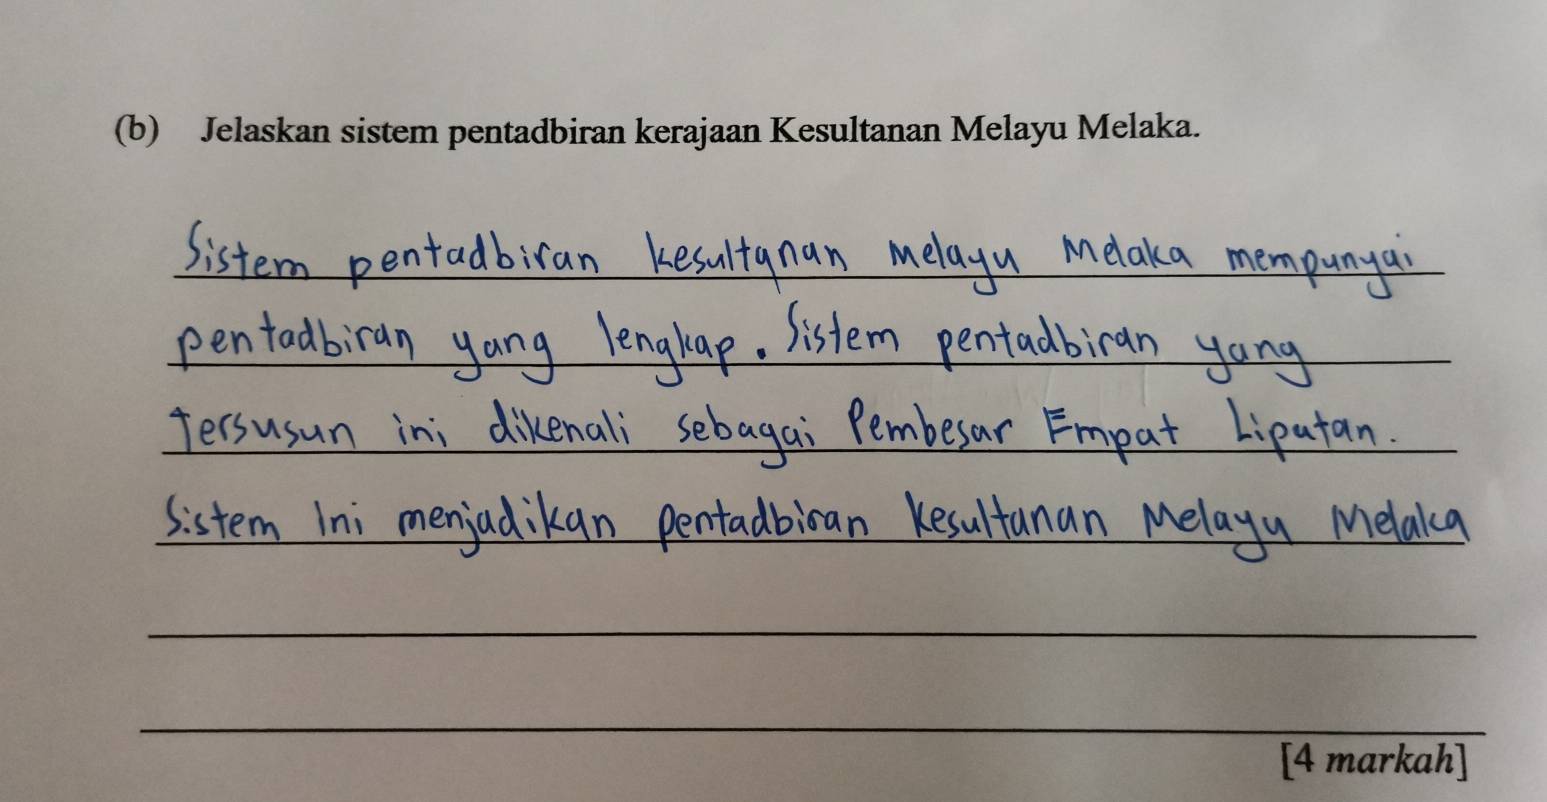 (b) Jelaskan sistem pentadbiran kerajaan Kesultanan Melayu Melaka.
Sistem pentadbiran kesultanan Melayu Melaka mempunyai
pentadbiran yang lengkap. Sistem pentadbiran yang
tersusun ini dikenali sebagai Pembesar Empat Liputan.
Sistem Ini menjadikan pentadbiran Kesultanan Melayu Melaka
[4 markah]